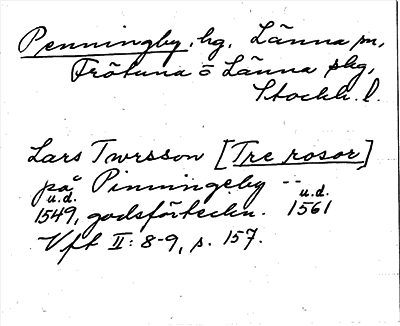 Penningby, hg, Länna sn,
Frötuna o Länna skg,
Stockh. l.
Lars Turesson [Tre rosor]
på Pinningeby --
u.d. u.d.
1549, godsförteckn. 1561
Vft II: 8-9, s. 157.